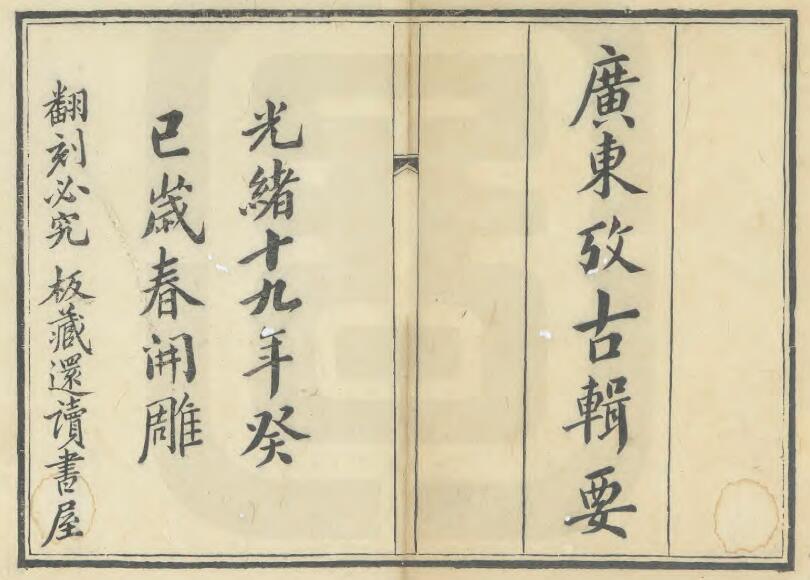 廣東攷古輯要
光緒十九年癸
巳歲春開雕
翻刻必究 板藏還讀書屋